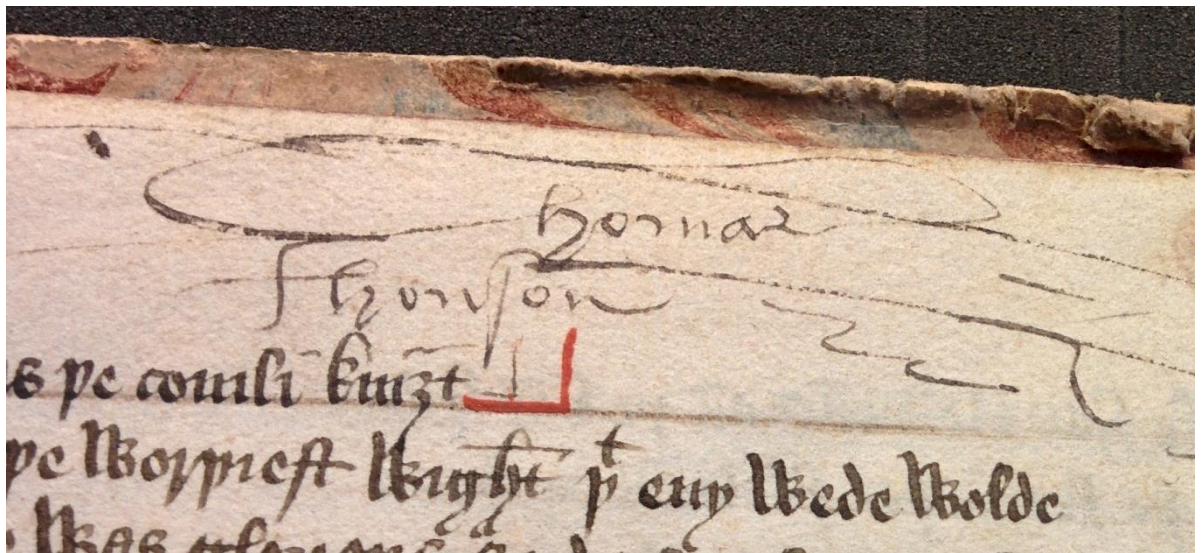 Thomas
Thonson
s þe comli kniȝt
þe Worþiest Wight þt eny Wede Wolde
Was